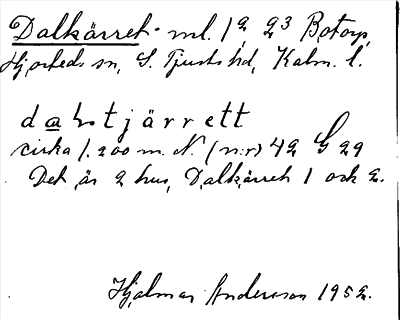 Dalkärret ml. 1² 2³ Botorp,
Hjorteds sn, S. Tjusts hd, Kalm. l.
dalstjärrett
cirka 1.200 m. N. (n:r) 42 G 29
Det är 2 hus, Dalkärret 1 och 2.
Hjalmar Andersson 1952.